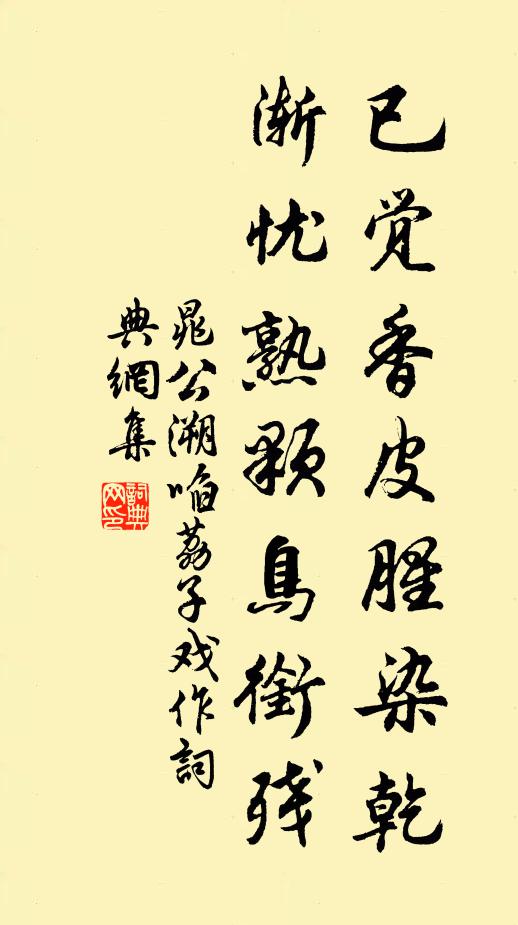 已觉香皮腥染乾
渐忧熟颗鳥銜残
晁公溯啗荔子戏作詞
典網集
詞典网印